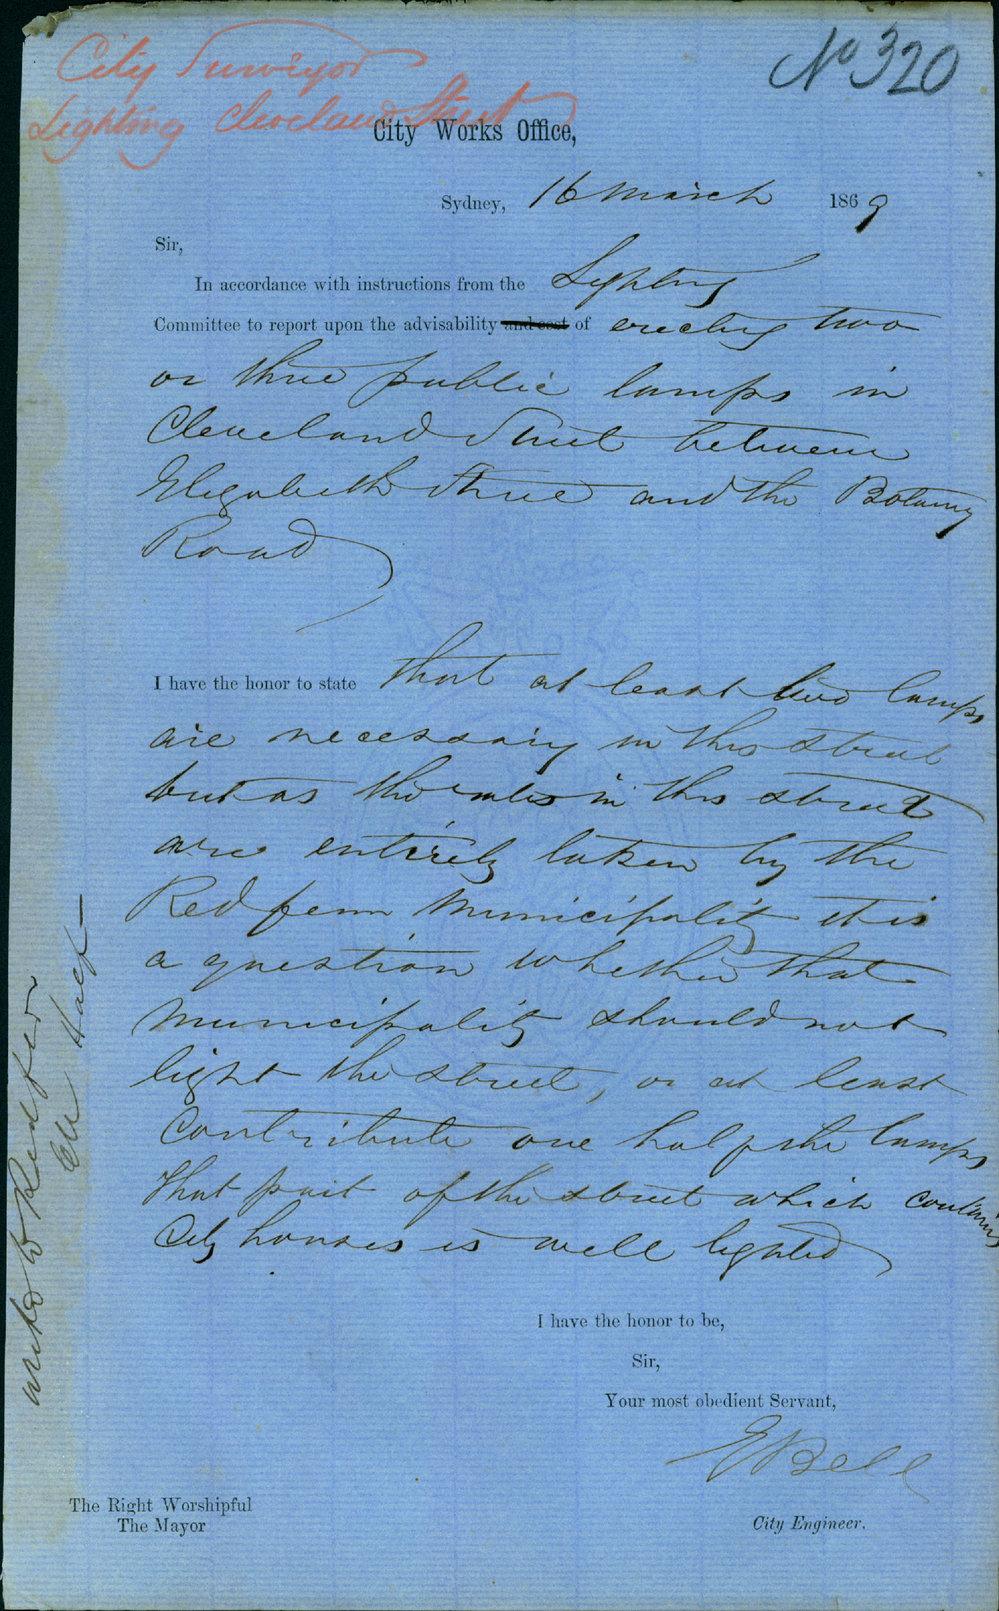 City Surveyor
Lighting Cleveland Street
No 320
City Works Office,
Sydney, 16 March 1869
Sir,
In accordance with instructions from the Lighting
Committee to report upon the advisability and cost of erecting two
or three public lamps in
Cleveland Street between
Elizabeth Street and the Botany
Road
I have the honor to state that at least two lamps
are necessary in this street
but as the rates in this street
are entirely taken by the
Redfern Municipality it is
a question whether that
Municipality should not
light the street, or at least
contribute one half the lamps
that part of the street which contains
City houses is well lighted
I have the honor to be,
Sir,
Your most obedient Servant,
E Bell
The Right Worshipful
The Mayor
City Engineer.
write to Redfern
Half